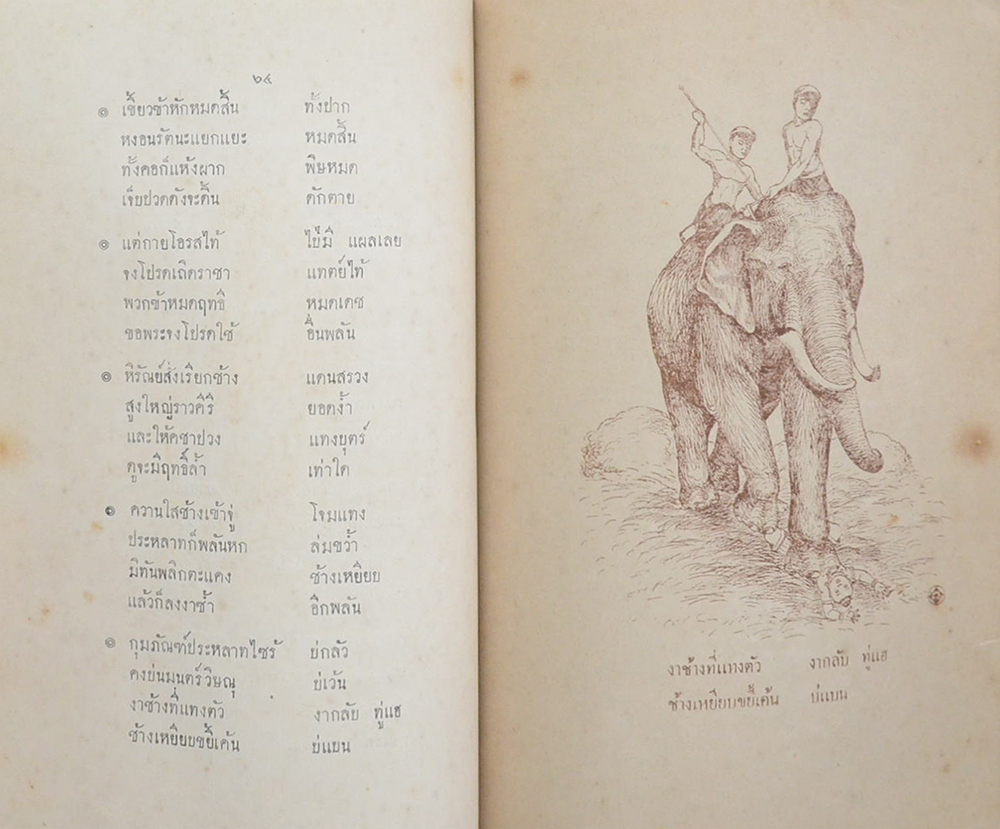 ๖๔
๏ เขี้ยวข้าหักหมดสิ้น ทั้งปาก
หงอนรัตนะแยกแยะ หมดสิ้น
ทั้งคอก็แห้งผาก พิษหมด
เจ็บปวดดังจะดิ้น ดักตาย
๏ แต่กายโอรสไท้ ไป่มี แผลเลย
จงโปรดเถิดราชา แทตย์ไท้
พวกข้าหมดฤทธิ หมดเดช
ขอพระจงโปรดใช้ อื่นพลัน
๏ หิรัณย์สั่งเรียกช้าง แดนสรวง
สูงใหญ่ราวคีรี ยอดง้ำ
และให้คชาปวง แทงบุตร์
ดูจะมีฤทธิ์ล้ำ เท่าใด
๏ ควานใสช้างเข้าจู่ โจมแทง
ประหลาทก็พลันหก ล่มขว้ำ
มิทันพลิกตะแคง ช้างเหยียบ
แล้วก็ลงงาซ้ำ อีกพลัน
๏ กุมภัณฑ์ประหลาทไซร้ บ่กลัว
คงบ่นมนตร์วิษณุ บ่เว้น
งาช้างที่แทงตัว งากลับ ทู่แฮ
ช้างเหยียบขยี้เค้น บ่แบน
งาช้างที่แทงตัว งากลับ ทู่แฮ
ช้างเหยียบขยี้เค้น บ่แบน